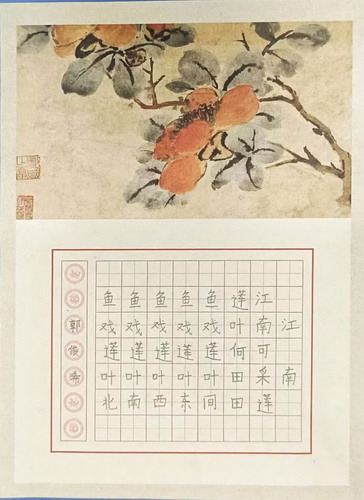 江南
江南可采莲
莲叶何田田
鱼戏莲叶间
鱼戏莲叶东
鱼戏莲叶西
鱼戏莲叶南
鱼戏莲叶北
郭俊希